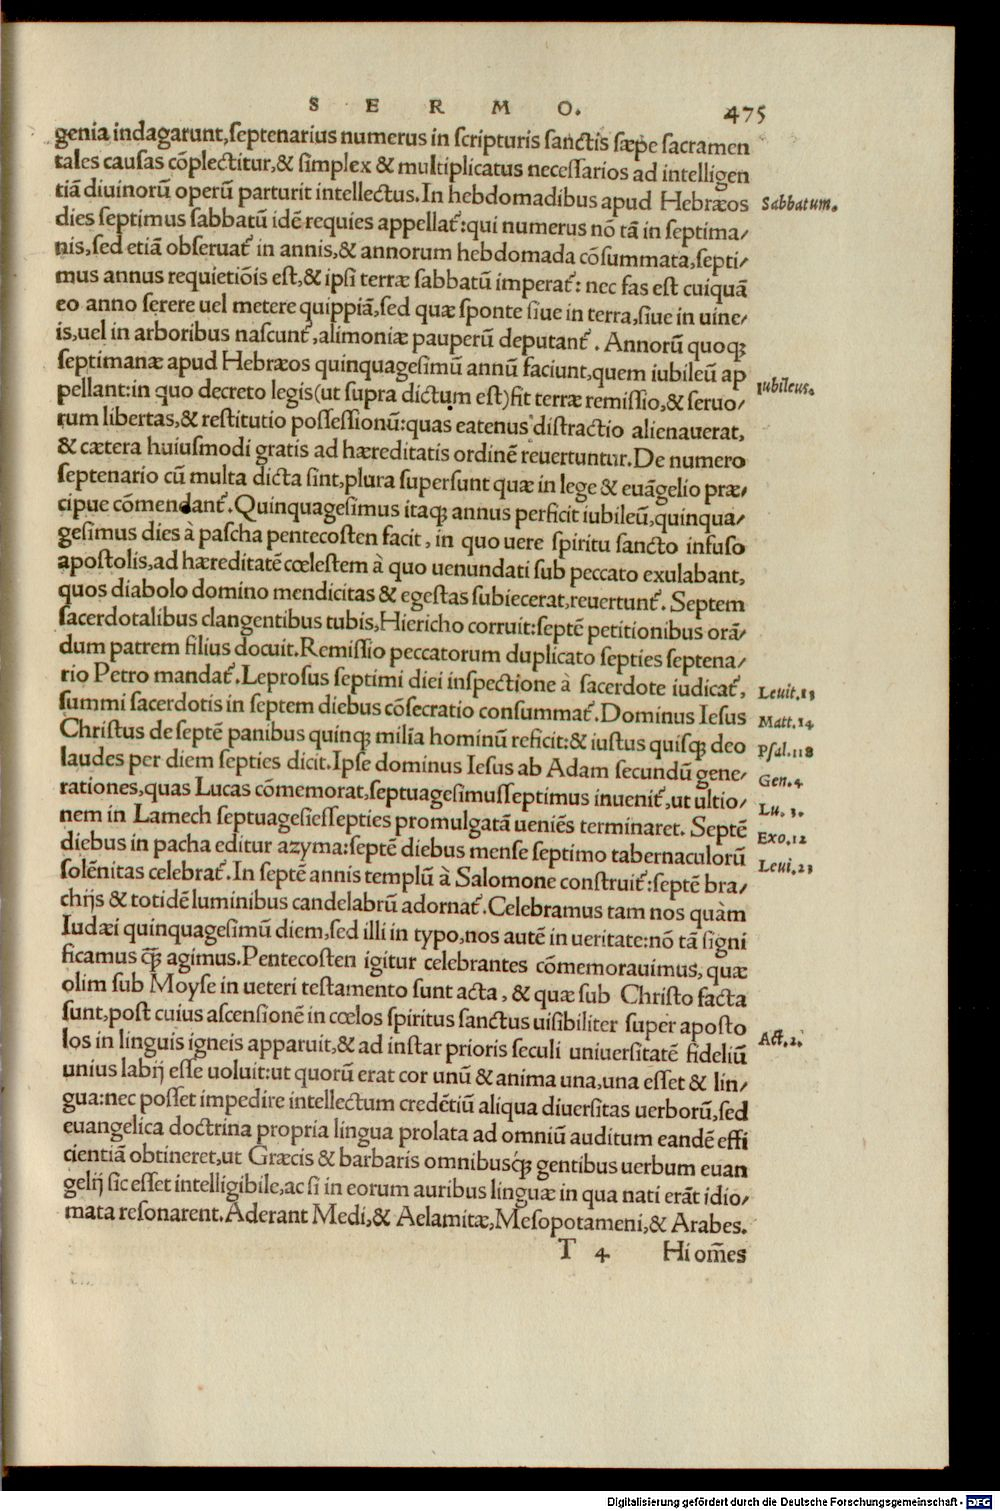 S E R M O. 475
genia indagarunt,ſeptenarius numerus in ſcripturis ſanctis ſæpe ſacramen
tales cauſas cōplectitur,& ſimplex & multiplicatus neceſſarios ad intelligen
tiā diuinorū operū parturit intellectus.In hebdomadibus apud Hebræos
Sabbatum.
dies ſeptimus ſabbatū idē requies appellat᷑:qui numerus nō tā in ſeptima/
nis,ſed etiā obſeruat᷑ in annis,& annorum hebdomada cōſummata,ſepti/
mus annus requietiōis eſt,& ipſi terræ ſabbatū imperat᷑: nec fas eſt cuiquā
eo anno ſerere uel metere quippiā,ſed quæ ſponte ſiue in terra,ſiue in uine/
is,uel in arboribus naſcunt᷑,alimoniæ pauperū deputant᷑. Annorū quoqꝫ
ſeptimanæ apud Hebræos quinquageſimū annū faciunt,quem iubileū ap
Iubileus.
pellant:in quo decreto legis(ut ſupra dictum eſt)fit terræ remiſſio,& ſeruo/
rum libertas,& reſtitutio poſſeſſionū:quas eatenus diſtractio alienauerat,
& cætera huiuſmodi gratis ad hæreditatis ordinē reuertuntur.De numero
ſeptenario cū multa dicta ſint,plura ſuperſunt quæ in lege & euāgelio præ/
cipue cōmendant᷑.Quinquageſimus itaqꝫ annus perficit iubileū,quinqua/
geſimus dies à paſcha pentecoſten facit, in quo uere ſpiritu ſancto infuſo
apoſtolis,ad hæreditatē cœleſtem à quo uenundati ſub peccato exulabant,
quos diabolo domino mendicitas & egeſtas ſubiecerat,reuertunt᷑. Septem
ſacerdotalibus clangentibus tubis,Hiericho corruit:ſeptē petitionibus orā/
dum patrem filius docuit.Remiſſio peccatorum duplicato ſepties ſeptena/
rio Petro mandat᷑.Leproſus ſeptimi diei inſpectione à ſacerdote iudicat᷑,
Leuit.13
ſummi ſacerdotis in ſeptem diebus cōſecratio conſummat᷑.Dominus Ieſus
Matt.14
Chriſtus de ſeptē panibus quinqꝫ milia hominū reficit:& iuſtus quiſqꝫ deo
Pſal.118
laudes per diem ſepties dicit.Ipſe dominus Ieſus ab Adam ſecundū gene/
Gen.4
rationes,quas Lucas cōmemorat,ſeptuageſimuſſeptimus inuenit᷑,ut ultio/
Lu. 3.
nem in Lamech ſeptuageſieſſepties promulgatā ueniēs terminaret. Septē
Exo.12
diebus in pacha editur azyma:ſeptē diebus menſe ſeptimo tabernaculorū
Leui.23
ſolēnitas celebrat᷑.In ſeptē annis templū à Salomone conſtruit᷑:ſeptē bra/
chijs & totidē luminibus candelabrū adornat᷑.Celebramus tam nos quàm
Iudæi quinquageſimū diem,ſed illi in typo,nos autē in ueritate:nō tā ſigni
ficamus q̄ꝫ agimus.Pentecoſten igitur celebrantes cōmemorauimus, quæ
olim ſub Moyſe in ueteri teſtamento ſunt acta, & quæ ſub Chriſto facta
ſunt,poſt cuius aſcenſionē in cœlos ſpiritus ſanctus uiſibiliter ſuper apoſto
Act.2.
los in linguis igneis apparuit,& ad inſtar prioris ſeculi uniuerſitatē fideliū
unius labij eſſe uoluit:ut quorū erat cor unū & anima una,una eſſet & lin/
gua:nec poſſet impedire intellectum credētiū aliqua diuerſitas uerborū,ſed
euangelica doctrina propria lingua prolata ad omniū auditum eandē effi
cientiā obtineret,ut Græcis & barbaris omnibusq́ꝫ gentibus uerbum euan
gelij ſic eſſet intelligibile,ac ſi in eorum auribus linguæ in qua nati erāt idio/
mata reſonarent.Aderant Medi,& Aelamitæ,Meſopotameni,& Arabes.
T 4 Hi om̄es
Digitalisierung gefördert durch die Deutsche Forschungsgemeinschaft - DFG